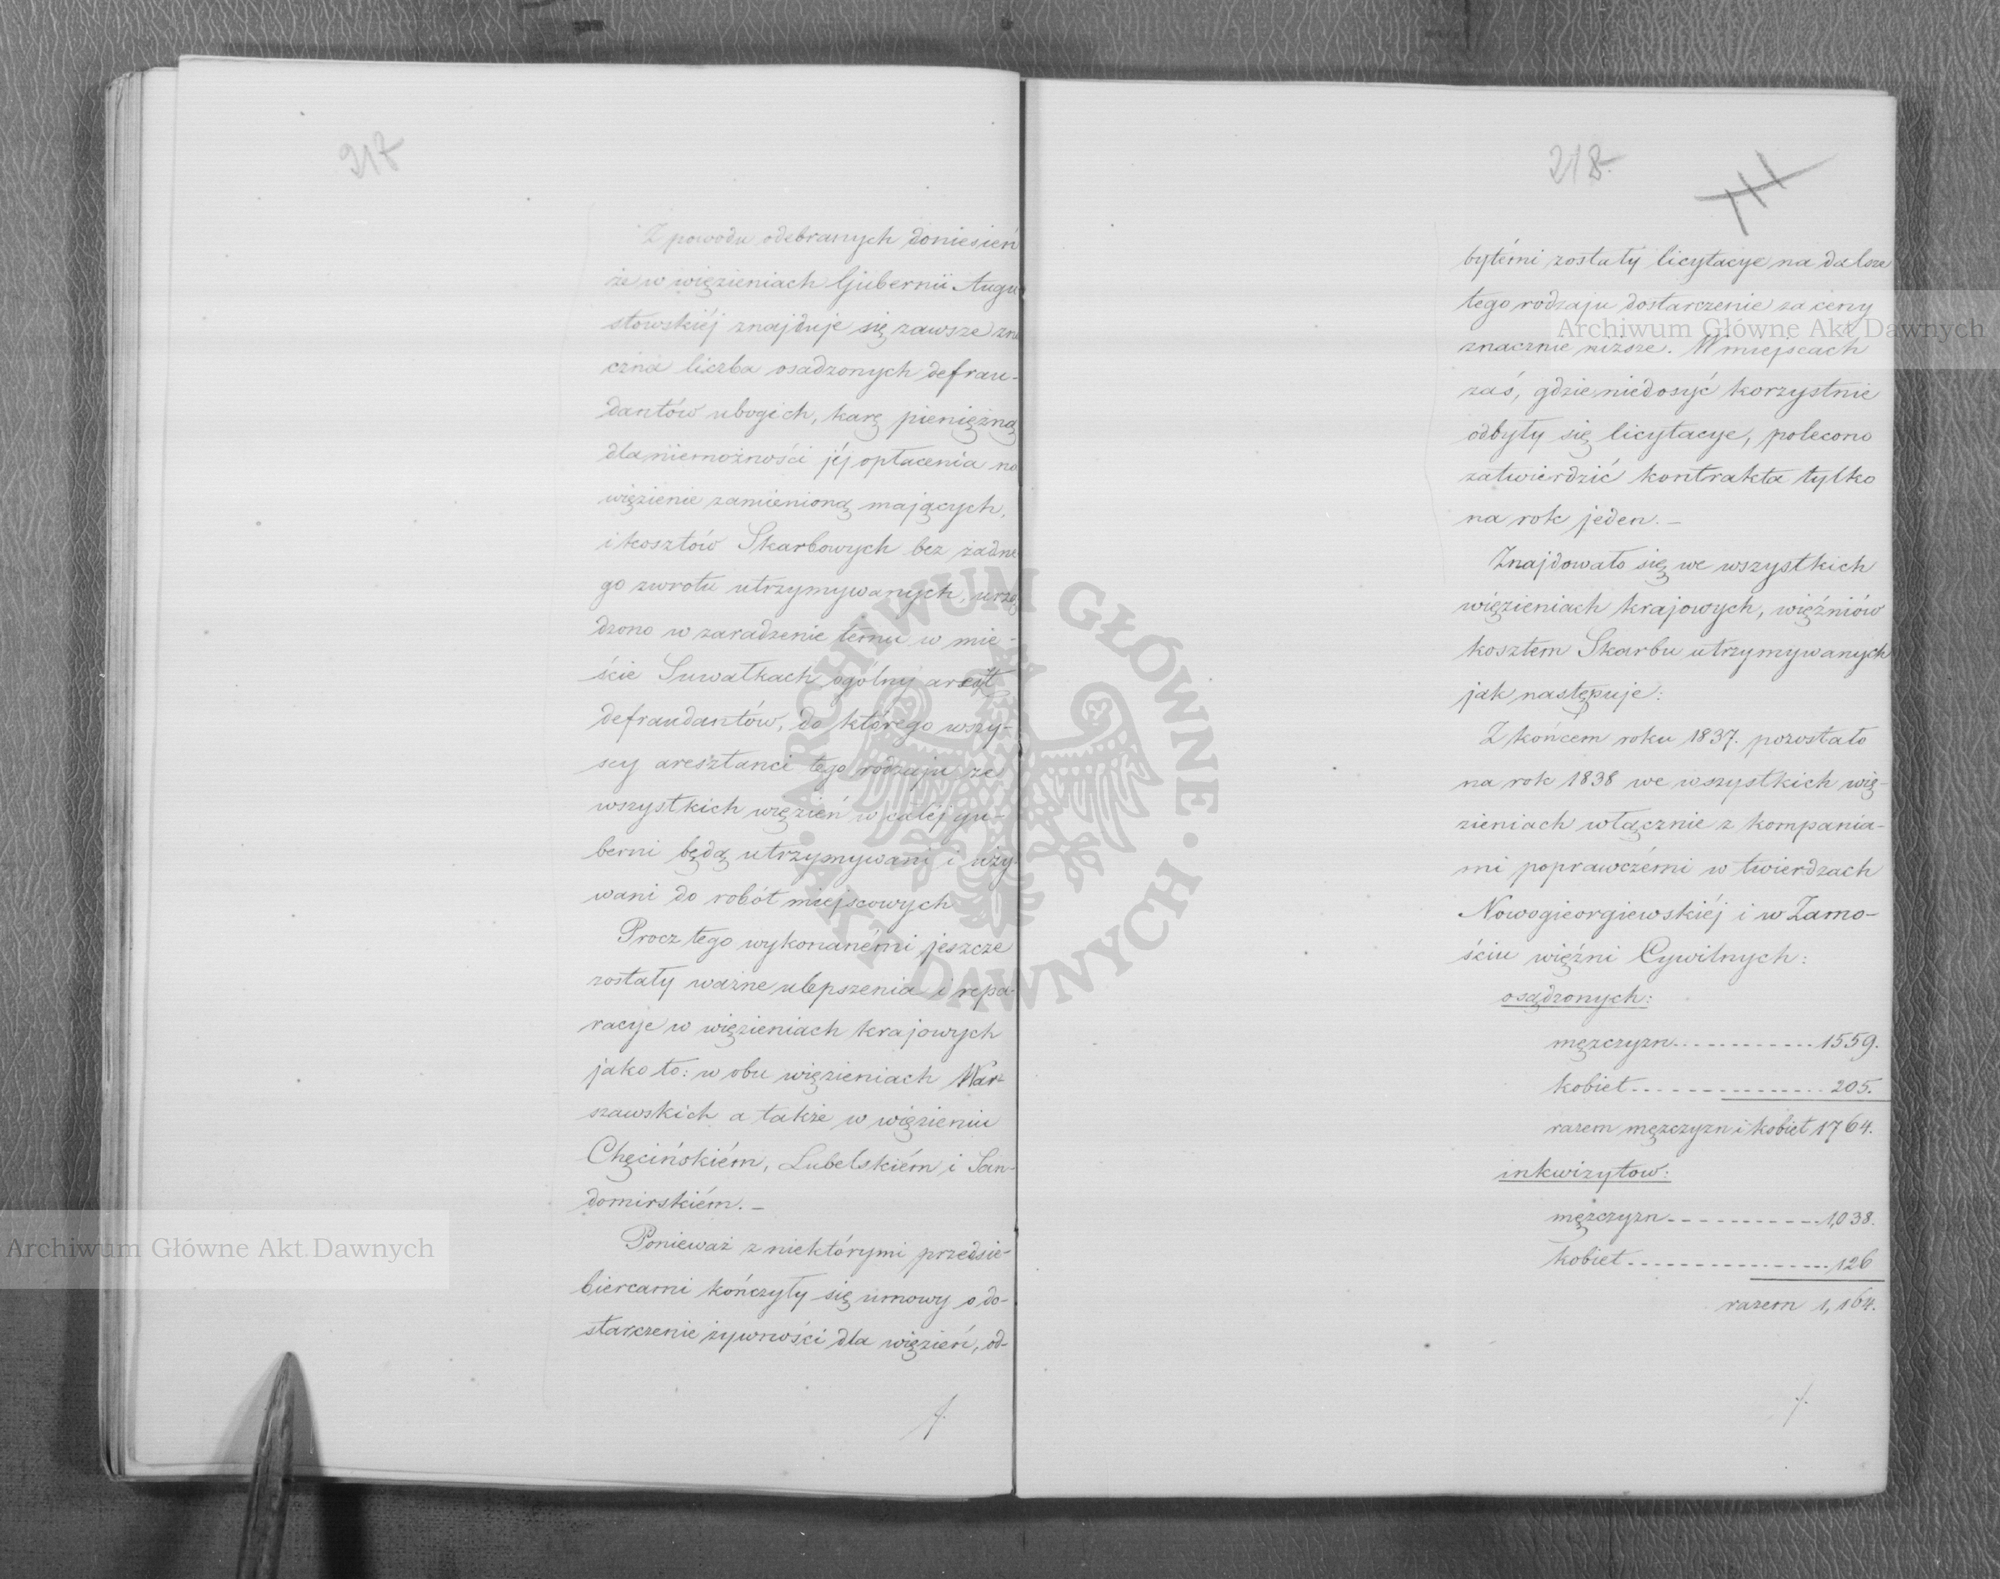 217
Z powodu odebranych doniesień
że w więzieniach Gubernii Augu
stowskiéj znajduje się zawsze zna
czna liczba osadzonych defrau-
dantów ubogich, karę pieniężną
dla niemożności jéj opłacenia na
więzienie zamienioną mających,
i kosztów Skarbowych bez żadne
go zwrotu utrzymywanych, urzą
dzono w zaradzenie temu w mie-
ście Suwałkach ogólny areszt
defraudantów, do którego wszy-
scy aresztanci tego rodzaju ze
wszystkich więzień w całéj gu-
berni będą utrzymywani i uży-
wani do robót miejscowych
Procz tego wykonanémi jeszcze
zostały ważne ulepszenia i repa-
racye w więzieniach krajowych
jako to: w obu więzieniach War-
szawskich a także w więzieniu
Chęcińskiém, Lubelskiém i San-
domirskiém. –
Ponieważ z niektórymi przedsie-
biercami kończyły się umowy o do-
starczenie żywności dla więzień, od-
218.
bytémi zostały licytacye na dalsze
tego rodzaju dostarczenie za ceny
znacznie niższe. W miejscach
zaś, gdzie niedosyć korzystnie
odbyły się licytacye, polecono
zatwierdzić kontrakta tylko
na rok jeden. –
Znajdowało się we wszystkich
więzieniach krajowych, więźniów
kosztem Skarbu utrzymywanych
jak następuje:
Z końcem roku 1837. pozostało
na rok 1838 we wszystkich wię-
zieniach włącznie z kompania-
mi poprawczémi w twierdzach
Nowogieorgiewskiéj i w Zamo-
ściu więźni Cywilnych:
osądzonych:
mężczyzn............1559.
kobiet................205.
razem mężczyzn i kobiet 1764.
inkwizytow:
mężczyzn............1,038.
kobiet................126
razem 1,164.
Archiwum Główne Akt Dawnych
Archiwum Główne Akt Dawnych
ARCHIWUM GŁÓWNE · AKT DAWNYCH ·